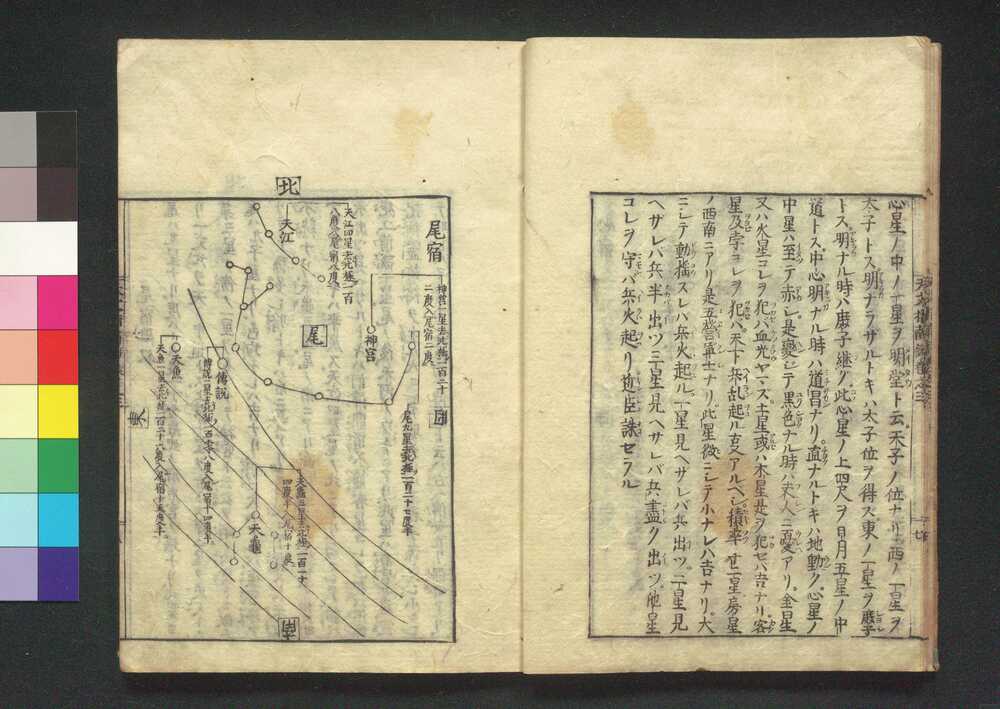 心星ノ中ノ一星ヲ明堂ト云天子ノ位ナリ西ノ一星ヲ
太子トス明ナラザルトキハ太子位ヲ得ス東ノ一星ヲ庶子
トス明ナル時ハ庶子継ク此心星ノ上四尺ヲ日月五星ノ中
道トス中心明ナル時ハ道昌ナリ直ナルトキハ地動ク心星ノ
中星ハ至テ赤シ是変シテ黒色ナル時ハ夫人ニ憂アリ金星
又ハ火星コレヲ犯バ血光ヤマズ土星或ハ木星是ヲ犯セバ吉ナリ客
星及孛コレヲ犯バ天下兵乱起ル支アルヘシ積卒十二星房星
ノ西南ニアリ是五営軍士ナリ此星微ニシテ小ナレハ吉ナリ大
ニシテ動揺スレハ兵火起ル一星見ヘサレバ兵出ツ二星見
ヘサレバ兵半出ツ三星見ヘサレバ兵盡ク出ツ他星
コレヲ守バ兵火起リ近臣誅セラル
尾宿
北
西
南
東
尾
神宮一星去北極一百二十
二度入尾宿二度
神宮
天江四星去北極一百
天江
尾九星去北極一百二十七度半
傳説
天魚
天龜